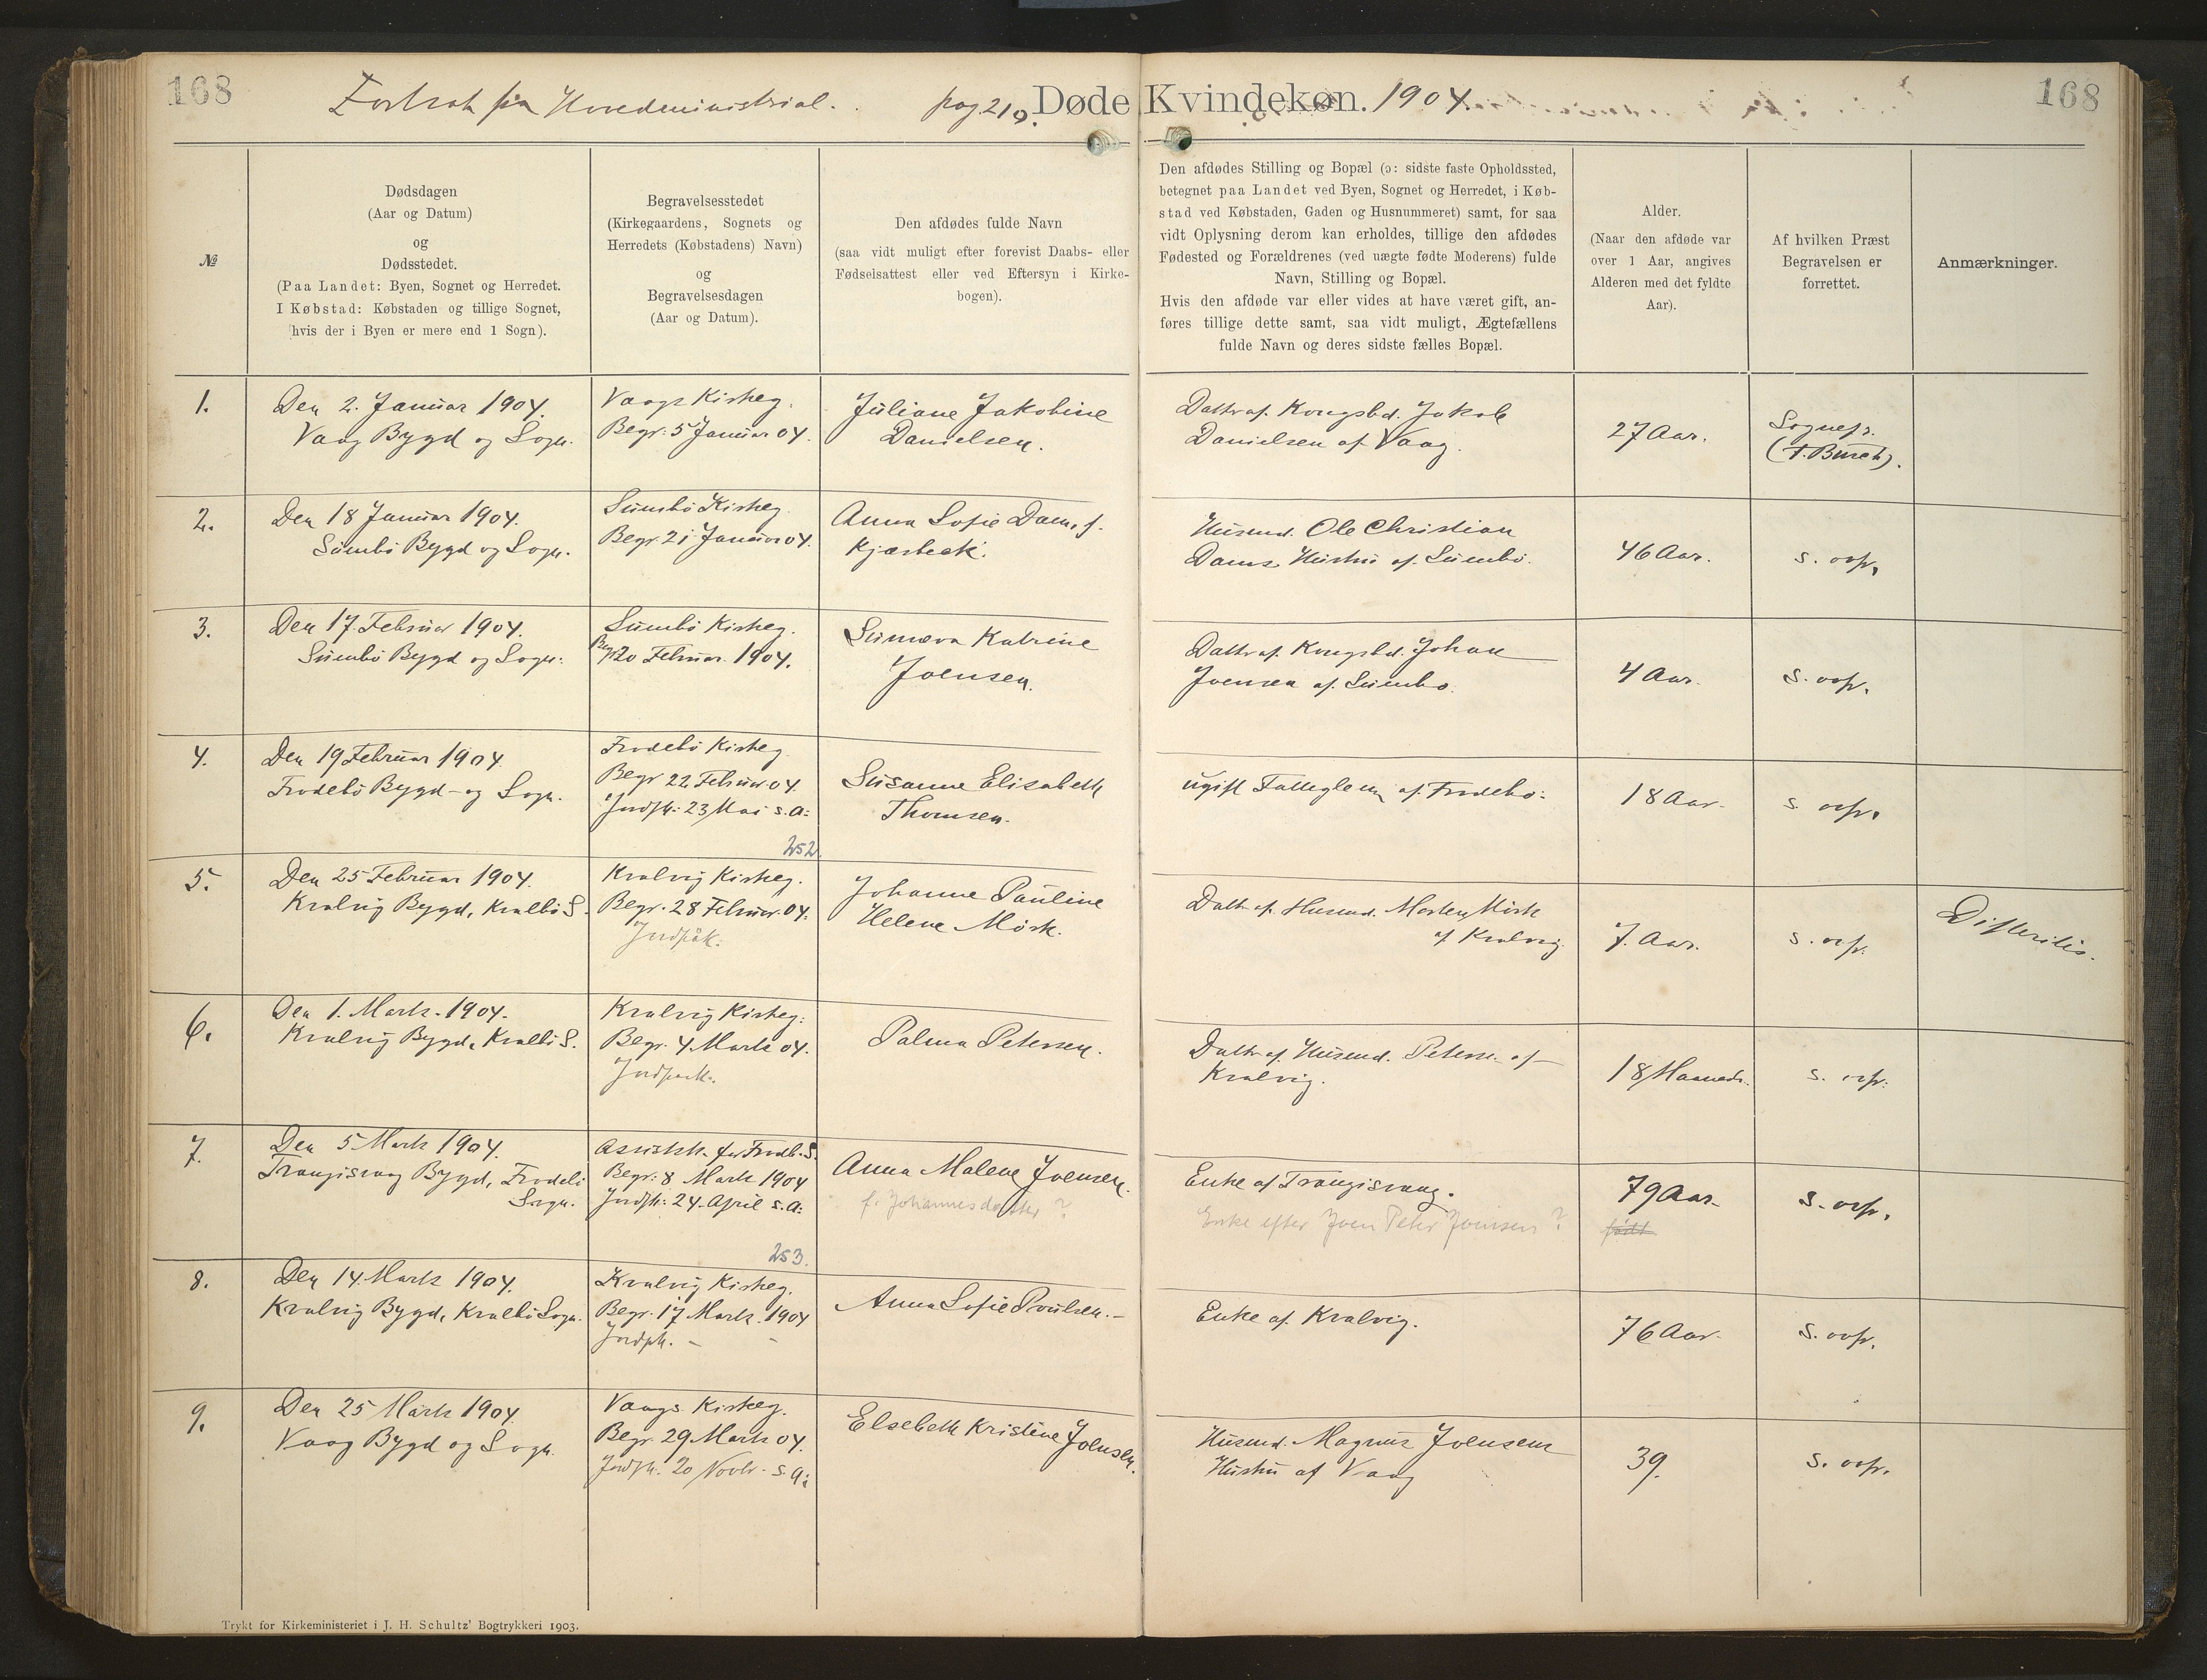 168
Fortsat fra Hovedministerial. pag. 210.
Døde Kvindekøn. 1904.
168
№
Dødsdagen
(Aar og Datum)
og
Dødsstedet.
(Paa Landet: Byen, Sognet og Herredet.
I Købstad: Købstaden og tillige Sognet,
hvis der i Byen er mere end 1 Sogn).
Begravelsesstedet
(Kirkegaardens, Sognets og
Herredets (Købstadens) Navn)
og
Begravelsesdagen
(Aar og Datum).
Den afdødes fulde Navn
(saa vidt muligt efter forevist Daabs- eller
Fødselsattest eller ved Eftersyn i Kirke-
bogen).
Den afdødes Stilling og Bopæl (ɔ: sidste faste Opholdssted,
betegnet paa Landet ved Byen, Sognet og Herredet, i Køb-
stad ved Købstaden, Gaden og Husnummeret) samt, for saa
vidt Oplysning derom kan erholdes, tillige den afdødes
Fødested og Forældrenes (ved uægte fødte Moderens) fulde
Navn, Stilling og Bopæl.
Hvis den afdøde var eller vides at have været gift, an-
føres tillige dette samt, saa vidt muligt, Ægtefællens
fulde Navn og deres sidste fælles Bopæl.
Alder.
(Naar den afdøde var
over 1 Aar, angives
Alderen med det fyldte
Aar).
Af hvilken Præst
Begravelsen er
forrettet.
Anmærkninger.
1.
Den 2. Januar 1904.
Vaag Bygd og Sogn.
Vaags Kirkeg.
Begr. 5 Januar 04.
Juliane Jakobine
Danielsen.
Datter af Kongsbd. Jakob
Danielsen af Vaag.
27 Aar.
Sognepr.
(F. Busch).
2.
Den 18 Januar 1904.
Sumbö Bygd og Sogn.
Sumbö Kirkeg.
Begr. 21 Januar 04.
Anna Sofie Dam, f.
Kjærbæk.
Husmd. Ole Christian
Dams Hustru af Sumbö.
46 Aar.
s. ovfr.
3.
Den 17. Februar 1904.
Sumbö Bygd og Sogn.
Sumbö Kirkeg.
Begr. 20 Februar. 1904.
Sunneva Katrine
Joensen.
Datter af. Kongsbd. Johan
Joensen af Sumbo.
4 Aar.
s. ovfr.
4.
Den 19 Februar 1904
Frodebö Bygd- og Sogn.
Frodebö Kirkeg.
Begr 22 Februar 04.
Jordfk: 23 Mai s. A:
Susanne Elisabeth
Thomsen.
ugift Fattiglem af Frodebo.
18 Aar.
s. ovfr.
252
5.
Den 25 Februar 1904.
Kvalvig Bygd, Kvalbö S.
Kvalvig Kirkeg.
Begr. 28 Februar 04.
Johanne Pauline
Helene Mörk.
Datt. af Husmd. Morten Mörk
af Kvalvig.
7. Aar.
s. ovfr.
Difteritis.
6.
Den 1. Marts. 1904.
Kvalvig Bygd, Kvalbö S.
Kvalvig Kirkeg.
Begr. 4 Marts 04.
Palma Petersen.
Datter af. Husmd. Petersen af
Kvalvig.
18 Maaneder.
s. ovfr.
7.
Den 5 Marts 1904.
Trangisvaag Bygd, Frodebö
Sogn.
Begr: 8 Marts 1904
Jordfk: 24. April s. A:
Anna Malene Joensen.
f. Johannesdatter?
Enke af Trangisvaag.
Enke efter Joen Peter Joensen?
79 Aar.
født
s. ovfr.
253.
8.
Den 14. Marts 1904.
Kvalvig Bygd, Kvalbö Sogn.
Kvalvig Kirkeg.
Begr. 17 Marts. 1904
Jordfk. -
Anna Sofie Poulsen.-
Enke af Kvalvig.
76 Aar.
s. ovfr.
9.
Den 25 Marts 1904
Vaag Bygd og Sogn.
Vaags Kirkeg.
Begr. 29 Marts 04.
Jordfk. 20 Novbr. s. A:
Elsebeth Kristine Joensen.
Husmd. Magnus Joensens
Hustru af Vaag
39.
s. ovfr.
Trykt for Kirkeministeriet i J. H. Schultz' Bogtrykkeri 1903.